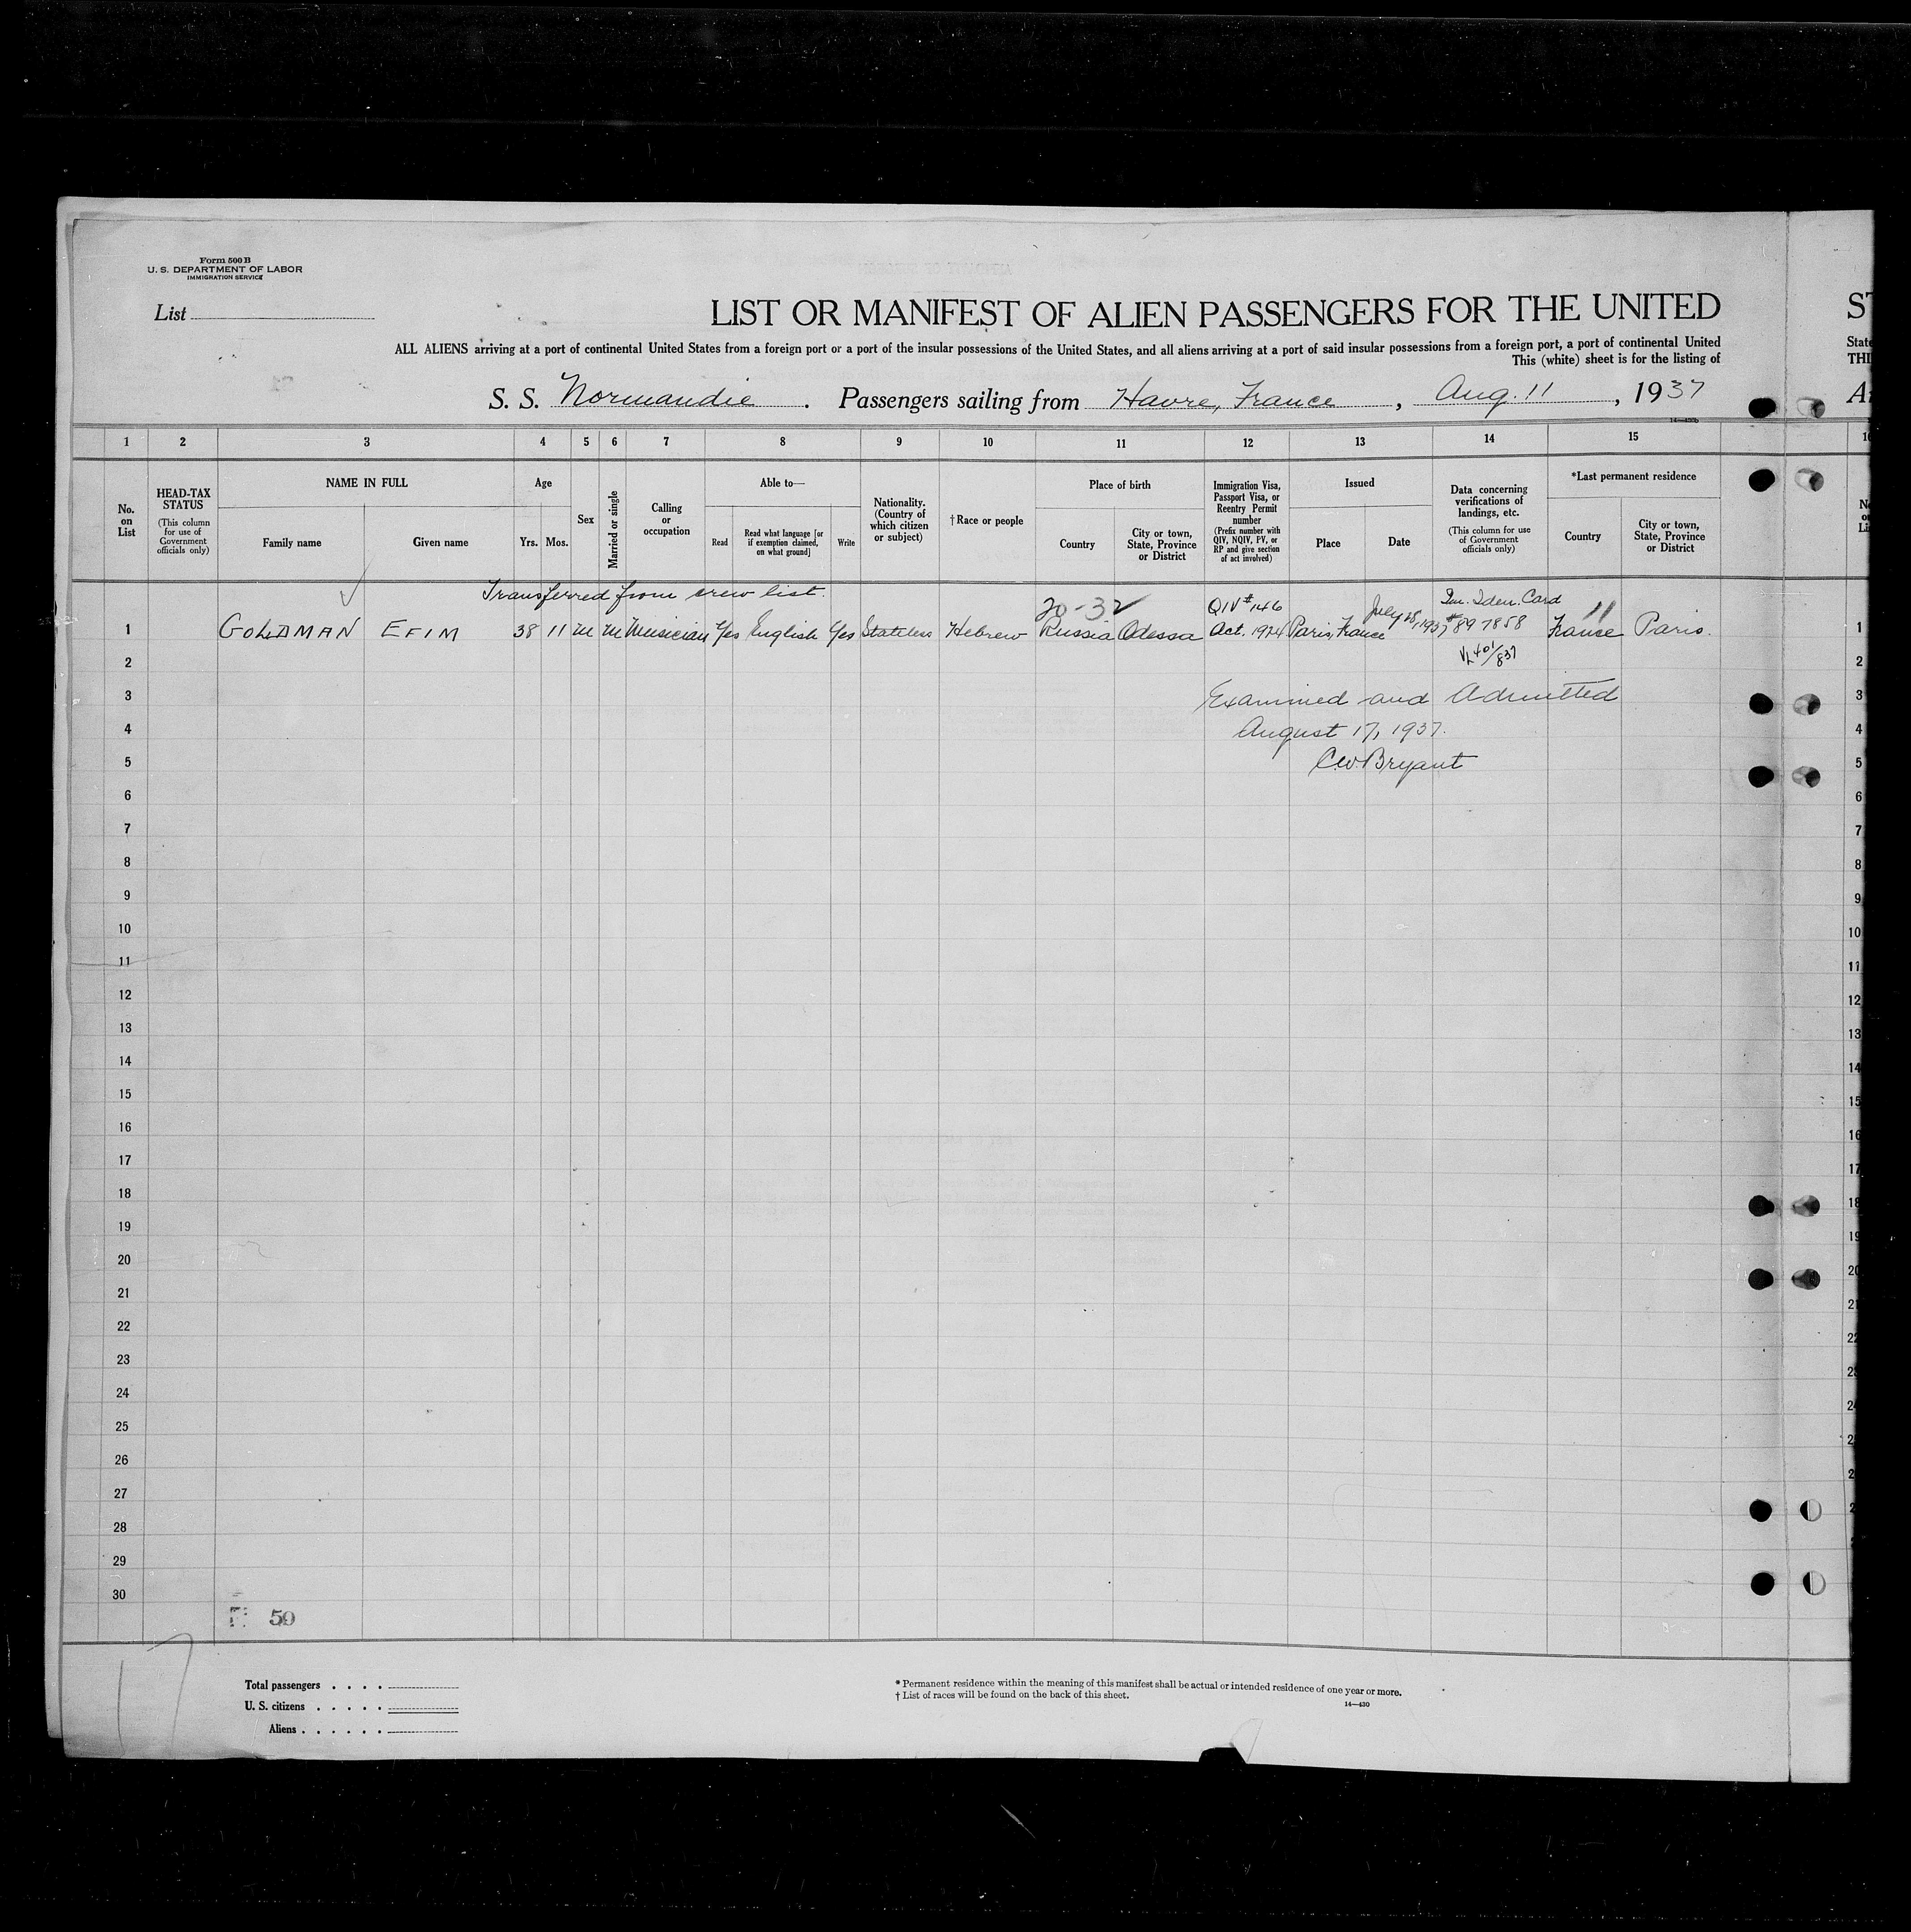 Form 500 B
U. S. DEPARTMENT OF LABOR
IMMIGRATION SERVICE
List
LIST OR MANIFEST OF ALIEN PASSENGERS FOR THE UNITED
ST
ALL ALIENS arriving at a port of continental United States from a foreign port or a port of the insular possessions of the United States, and all aliens arriving at a port of said insular possessions from a foreign port, a port of continental United
State
This (white) sheet is for the listing of
THI
S. S. Normandie . Passengers sailing from Havre, France , Aug. 11 , 1937
1 2 3 4 5 6 7 8 9 10 11 12 13 14 15
No. on List
HEAD-TAX STATUS
(This column for use of Government officials only)
NAME IN FULL
Family name
Given name
Age
Yrs. Mos.
Sex
Married or single
Calling or occupation
Able to—
Read
Read what language [or if exemption claimed, on what ground]
Write
Nationality. (Country of which citizen or subject)
† Race or people
Place of birth
Country
City or town, State, Province or District
Immigration Visa, Passport Visa, or Reentry Permit number
(Prefix number with QIV, NQIV, PV, or RP and give section of act involved)
Issued
Place
Date
Data concerning verifications of landings, etc.
(This column for use of Government officials only)
*Last permanent residence
Country
City or town, State, Province or District
Transferred from crew list.
20-32
QIV #146
July 28, 1937
Im. Iden. Card
11
1 GOLDMAN EFIM 38 11 M M Musician Yes English Yes Stateless Hebrew Russia Odessa Act. 1924 Paris, France #897858 France Paris. 1
2 2
VL 401/837
3 Examined and Admitted 3
4 August 17, 1937. 4
5 C.W. Bryant 5
6 6
7 7
8 8
9 9
10 10
11 11
12 12
13 13
14 14
15 15
16 16
17 17
18 18
19 19
20 20
21 21
22 22
23 23
24 24
25 25
26
27
28
29
30
59
17
Total passengers . . . .
U. S. citizens . . . . .
Aliens . . . . . .
* Permanent residence within the meaning of this manifest shall be actual or intended residence of one year or more.
† List of races will be found on the back of this sheet.
14—430